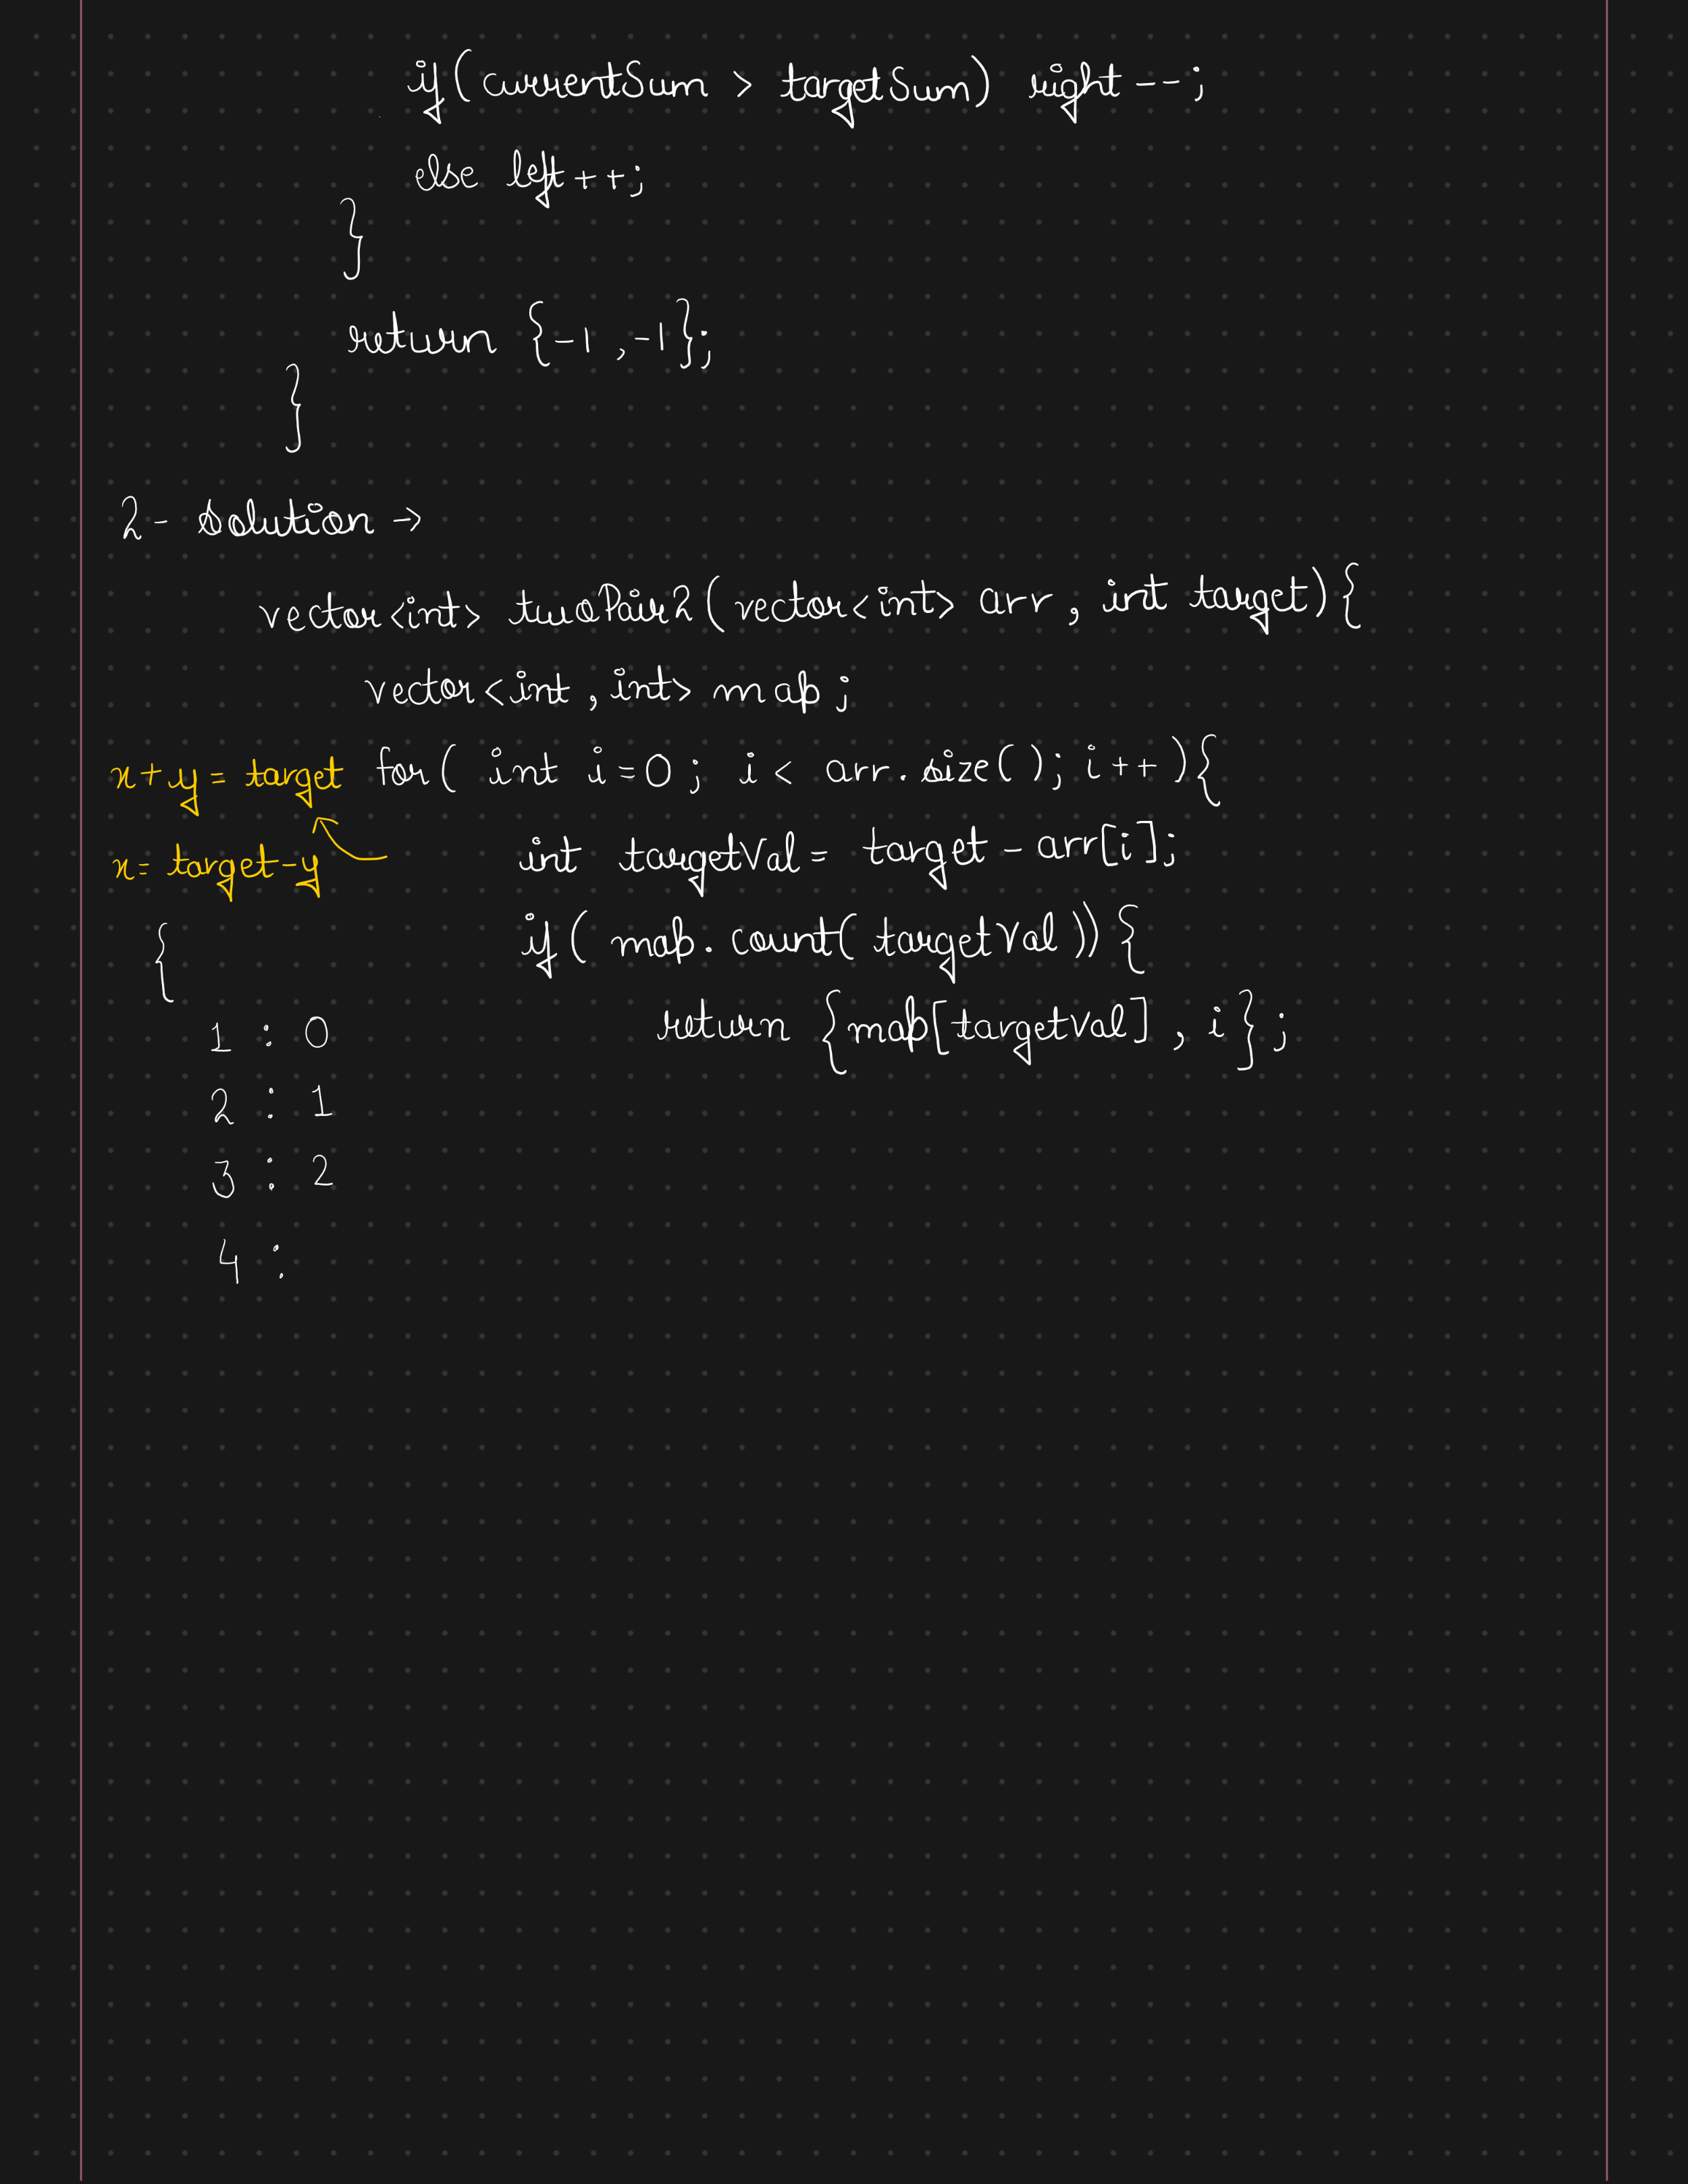 if(currentSum > targetSum) right--;
else left++;
}
return {-1,-1};
}
2- Solution ->
vector<int> twoPair2(vector<int> arr, int target){
vector<int,int> map;
x+y = target
for( int i=0; i < arr.size(); i++){
x = target-y
int targetVal = target - arr[i];
if( map.count( targetVal )){
{
return {map[targetVal], i};
1 : 0
2 : 1
3 : 2
4 :